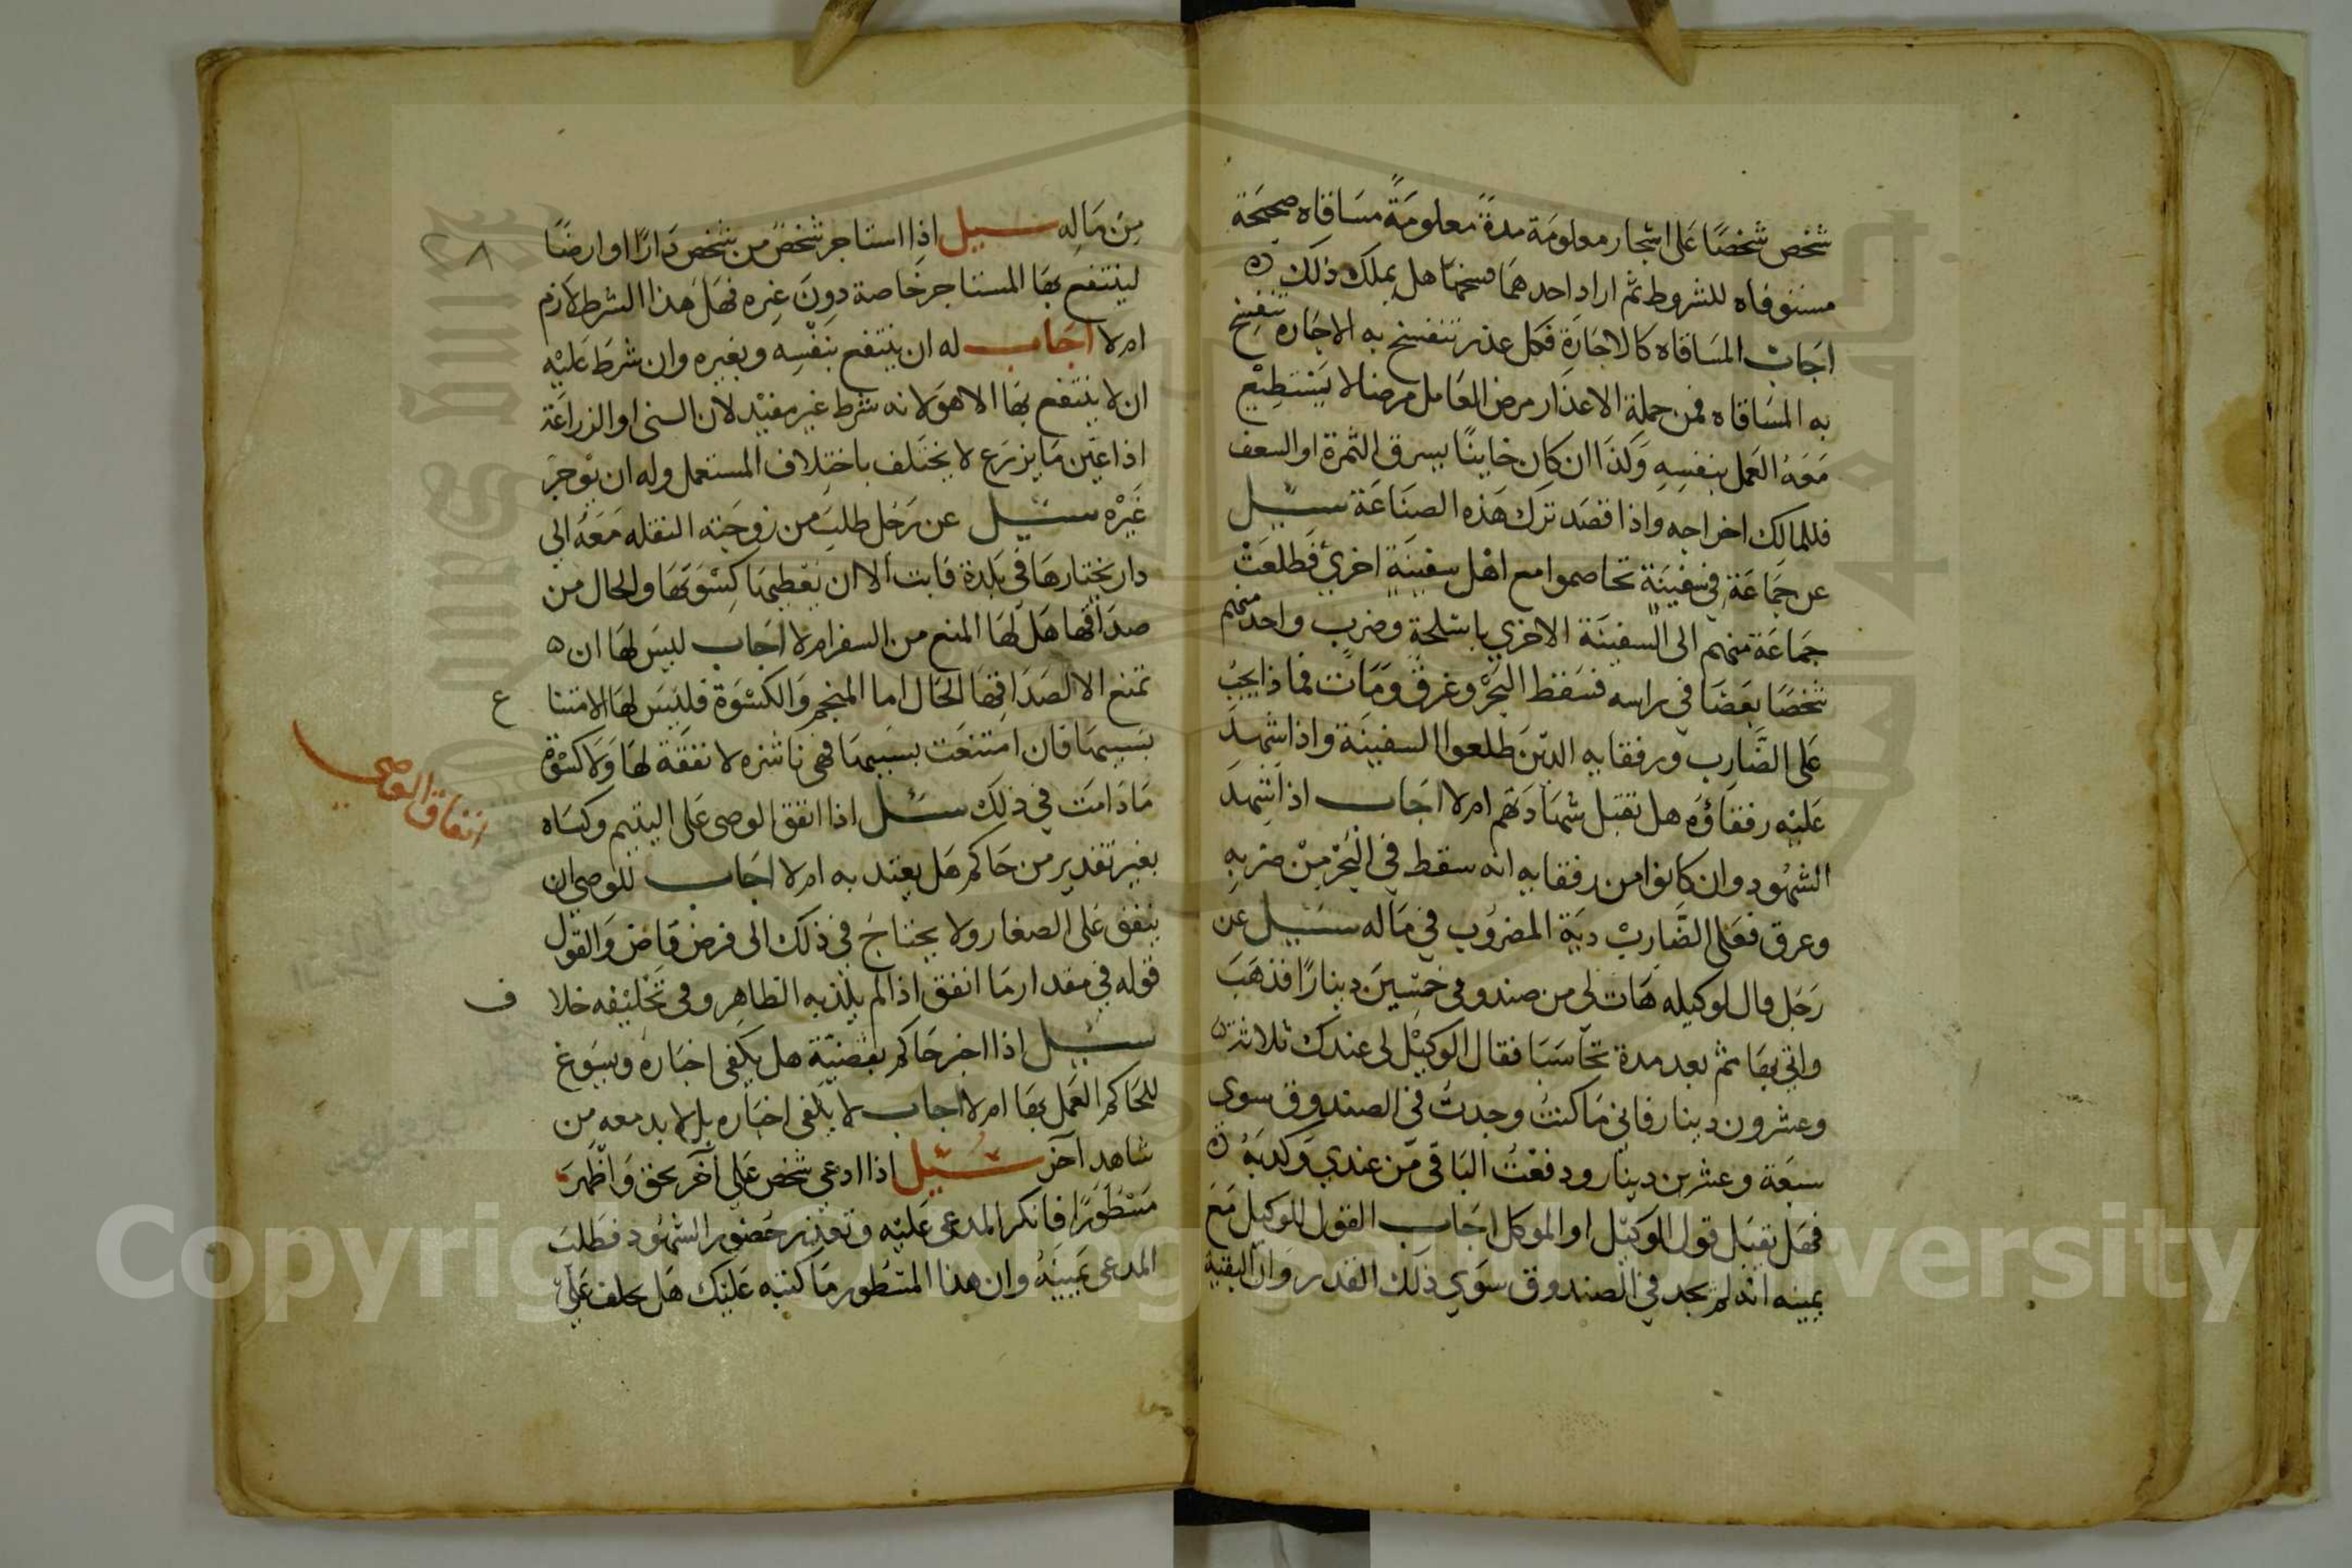 شخص شخصًا على اشجار معلومة مدةً معلومةً مساقاه صحيحة
مستوفاه للشروط ثم اراد احدهما فسخها هل يملك ذلك
اجاب المساقاه كالاجارة فكل عذر تنفسخ به الاجاره تنفسخ
به المساقاه فمن جملة الاعذار مرض العامل مرضا لا يستطيع
معه العمل بنفسه وكذا ان كان خاينًا يسرق الثمرة او السعف
فللمالك اخراجه واذا قصد ترك هذه الصناعة سيل
عن جماعة في سفينة تخاصموا مع اهل سفينة اخري فطلعت
جماعة منهم الى السفينة الاخري باسلحة وضرب واحد منهم
شخصا بعصا في راسه فسقط البحر وغرق ومات فماذا يجب
على الضارب ورفقايه الدين طلعوا السفينة واذا شهد
عليه رفقاؤه هل تقبل شهادتهم ام لا اجاب اذا شهد
الشهود وان كانوا من رفقايه انه سقط في البحر من ضربه
وعرق فعلى الضارب دية المضروب في ماله سيل عن
رجل قال لوكيله هات لي من صندوقي خمسين دينارًا فذهب
واتي بها ثم بعد مدة تحاسبا فقال الوكيل لي عندك ثلاثة
وعشرون دينار فاني ما كنت وجدت في الصندوق سوى
سبعة وعشرين دينار ودفعت الباقي من عندي وكدبه
فهل تقبل قول الوكيل او الموكل اجاب القول للوكيل مع
يمينه انه لم يجد في الصندوق سوي ذلك القدر وان البقية
٢٨
من ماله سيل اذا استاجر شخص من شخص دارًا او ارضًا
لينتفع بها المستاجر خاصة دون غيره فهل هذا الشرط لازم
ام لا اجاب له ان ينتفع بنفسه وبغيره وان شرط عليه
ان لا ينتفع بها الا هو لانه شرط غير مفيد لان السنى او الزراعة
اذا عين ما يزرع لا يختلف باختلاف المستعمل وله ان يوجر
غيره سيل عن رجل طلب من زوجته النقله معه الي
دار يختارها في بلدة فابت الا ان يعطيها كسوتها والحال من
صداقها هل لها المنع من السفر ام لا اجاب ليس لها ان
تمتنع الا لصداقها الحال اما المنجم والكسوة فليس لها الامتنا
ع
بسببهما فان امتنعت بسببهما فهي ناشزه لا نفقة لها ولا كسوة
انفاق الوصي
ما دامت في ذلك سئل اذا انفق الوصى على اليتيم وكساه
بغير تقدير من حاكم هل يعتد به ام لا اجاب للوصي ان
ينفق على الصغار ولا يحتاج في ذلك الى فرض قاض والقول
قوله في مقدار ما انفق اذا لم يكذبه الظاهر وفي تحليفه خلا
ف
سيل اذا اخبر حاكم بقضية هل يكفى اخباره ويسوغ
للحاكم العمل بها ام لا اجاب لا يكفى اخباره بل لا بد معه من
شاهد آخر سئيل اذا ادعى شخص علي آخر بحق واظهر
مسطورًا فانكر المدعى عليه وتعذر حضور الشهود فطلب
المدعى يمينه وان هذا المسطور ما كتبه عليك هل يحلف علي